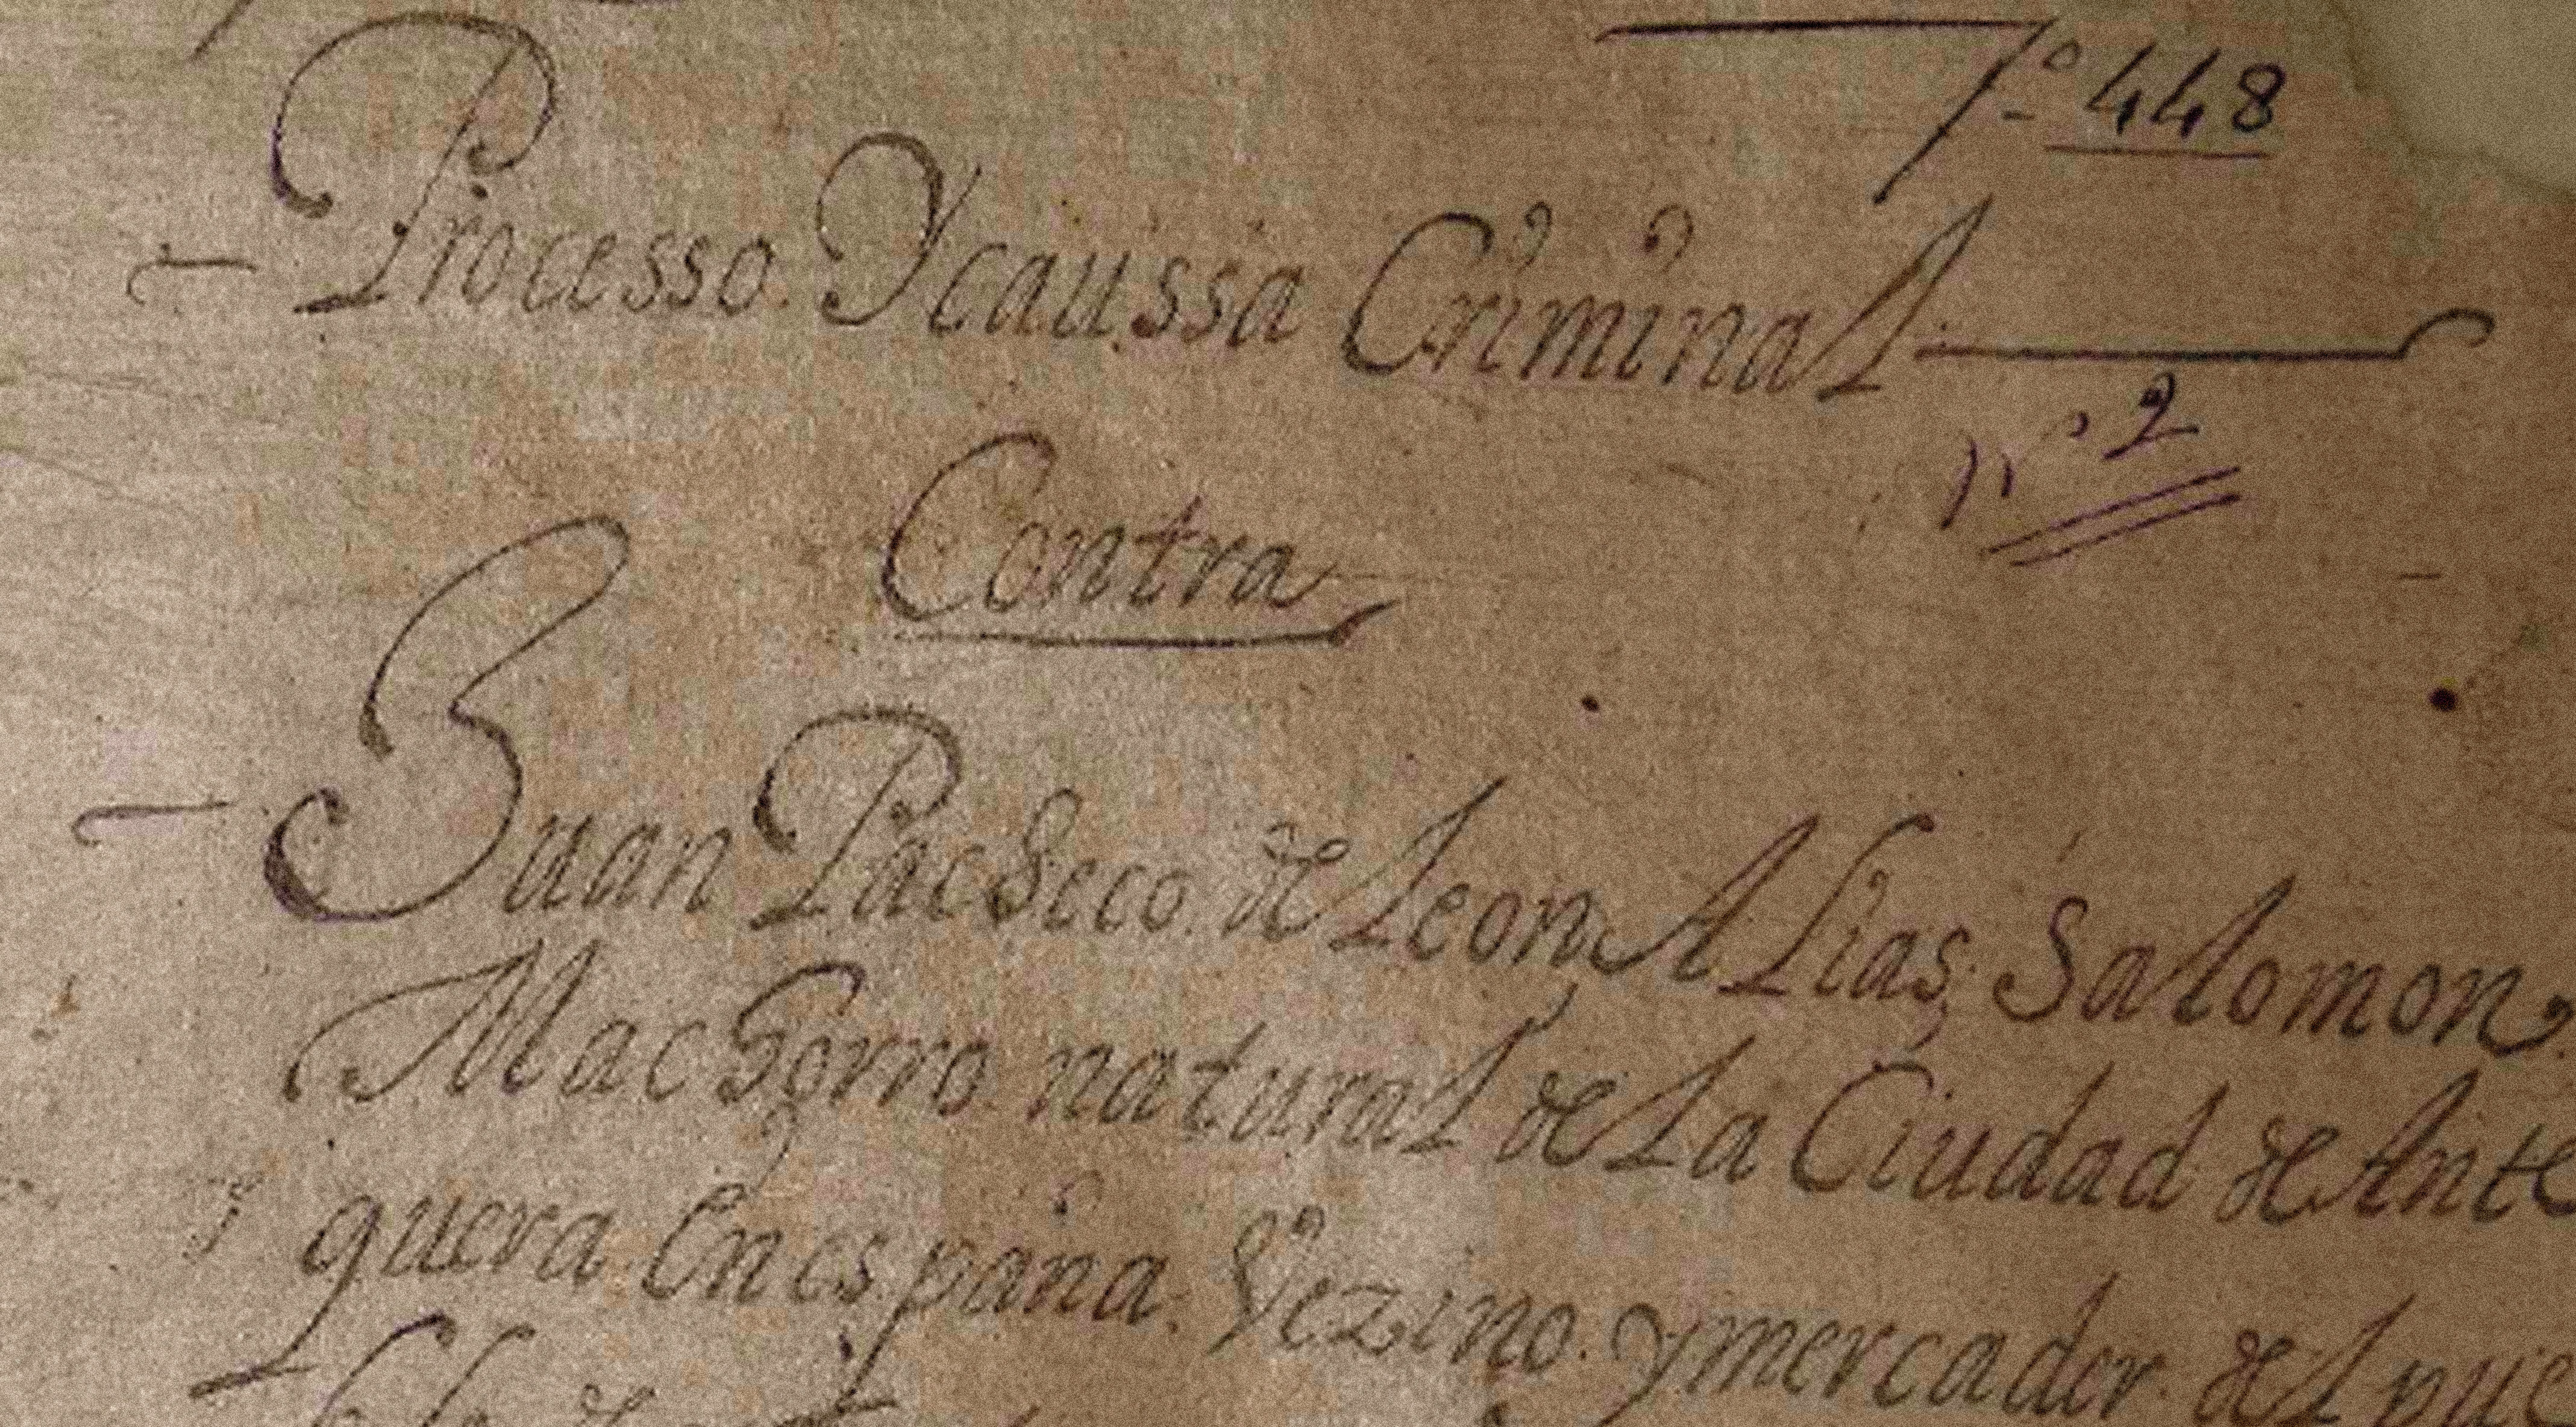 fº 448
Processo Y caussa Criminal
nº 2
Contra
Juan Pacheco de Leon Alias Salomon
Machorro natural de La Ciudad de Ante
quera En españa. Vezino. y mercader del pue